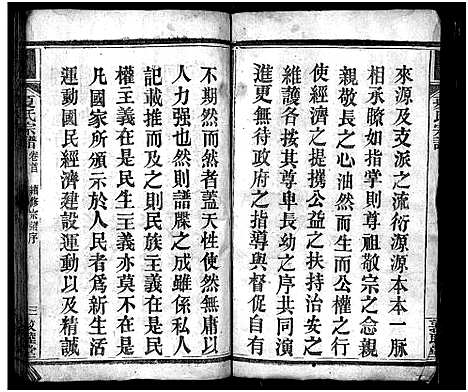 來源及支派之流衍源源本本一脈
相承瞭如指掌則尊祖敬宗之念親
親敬長之心油然而生而公權之行
使經濟之提攜公益之扶持治安之
維護各按其尊卑長幼之序共同演
進更有優善之指導與督促自有
不期然而然者蓋天性使然無庸以
人力強爲也然則譜牒之成雖係私人
記載推而行之則民族主義在是民
權主義在是民生主義亦莫不在是
凡國家所頒示於人民者爲新生活
運動國民經濟建設運動以及精誠
夏氏宗譜
卷首
續修宗譜序
三
敦睦堂